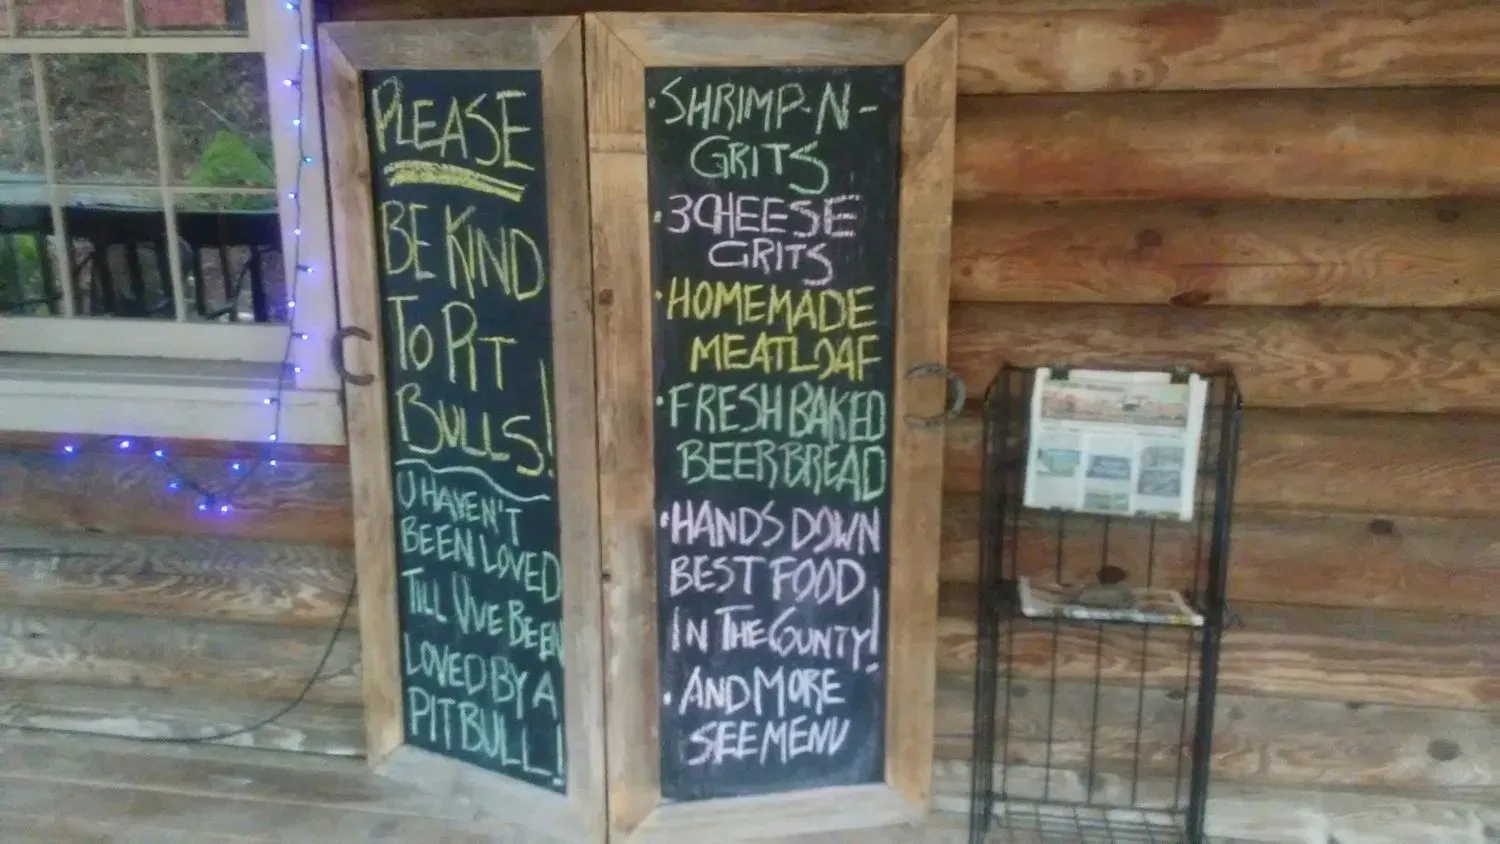 PLEASE
BE KIND
TO PIT
BULLS!
U HAVEN'T
BEEN LOVED
TILL U'VE BEEN
LOVED BY A
PITBULL!
• SHRIMP-N-
GRITS
• 3 CHEESE
GRITS
• HOMEMADE
MEATLOAF
• FRESH BAKED
BEER BREAD
• HANDS DOWN
BEST FOOD
IN THE COUNTY!
• AND MORE
SEE MENU